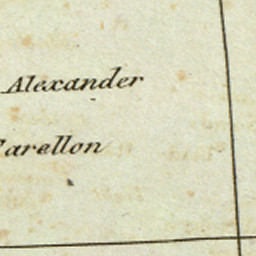 Alexander
arellon